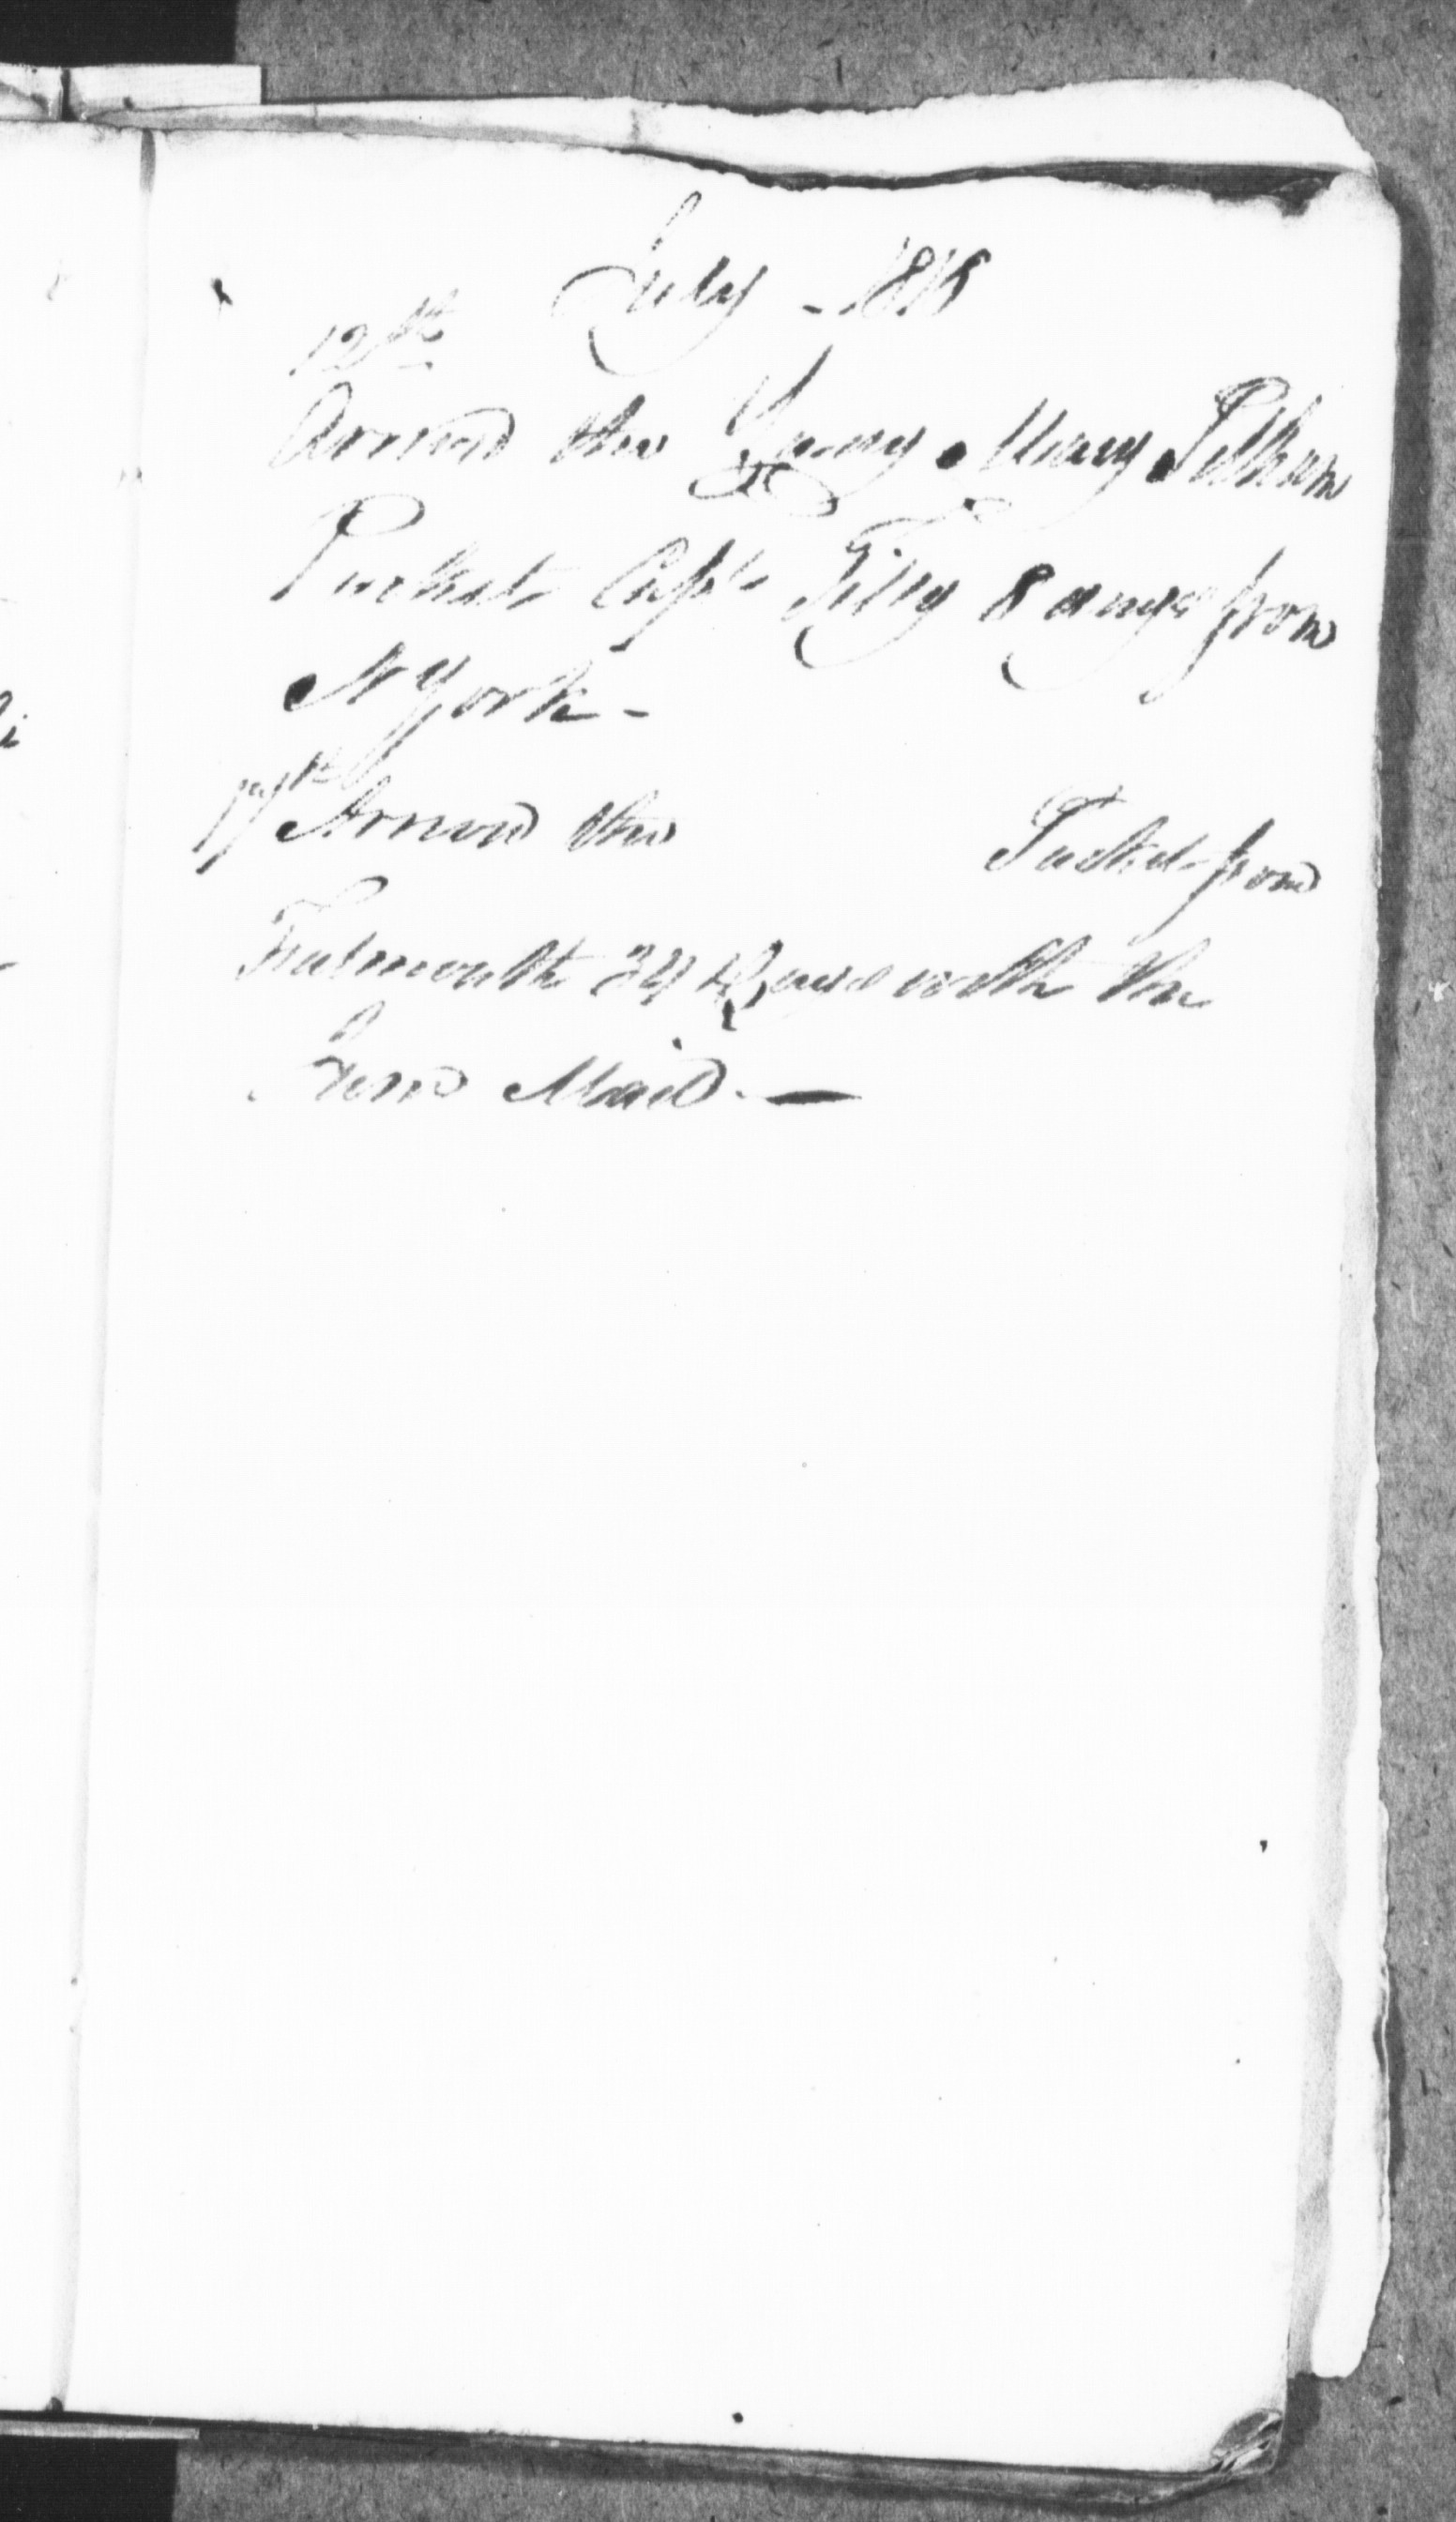 July - 1818
12th
Arrived the Lady Mary Pelham
Packet Capt Tilly 8 days from
N York -
17th Arrived the Packet from
Falmouth 34 days with the
June Mail -